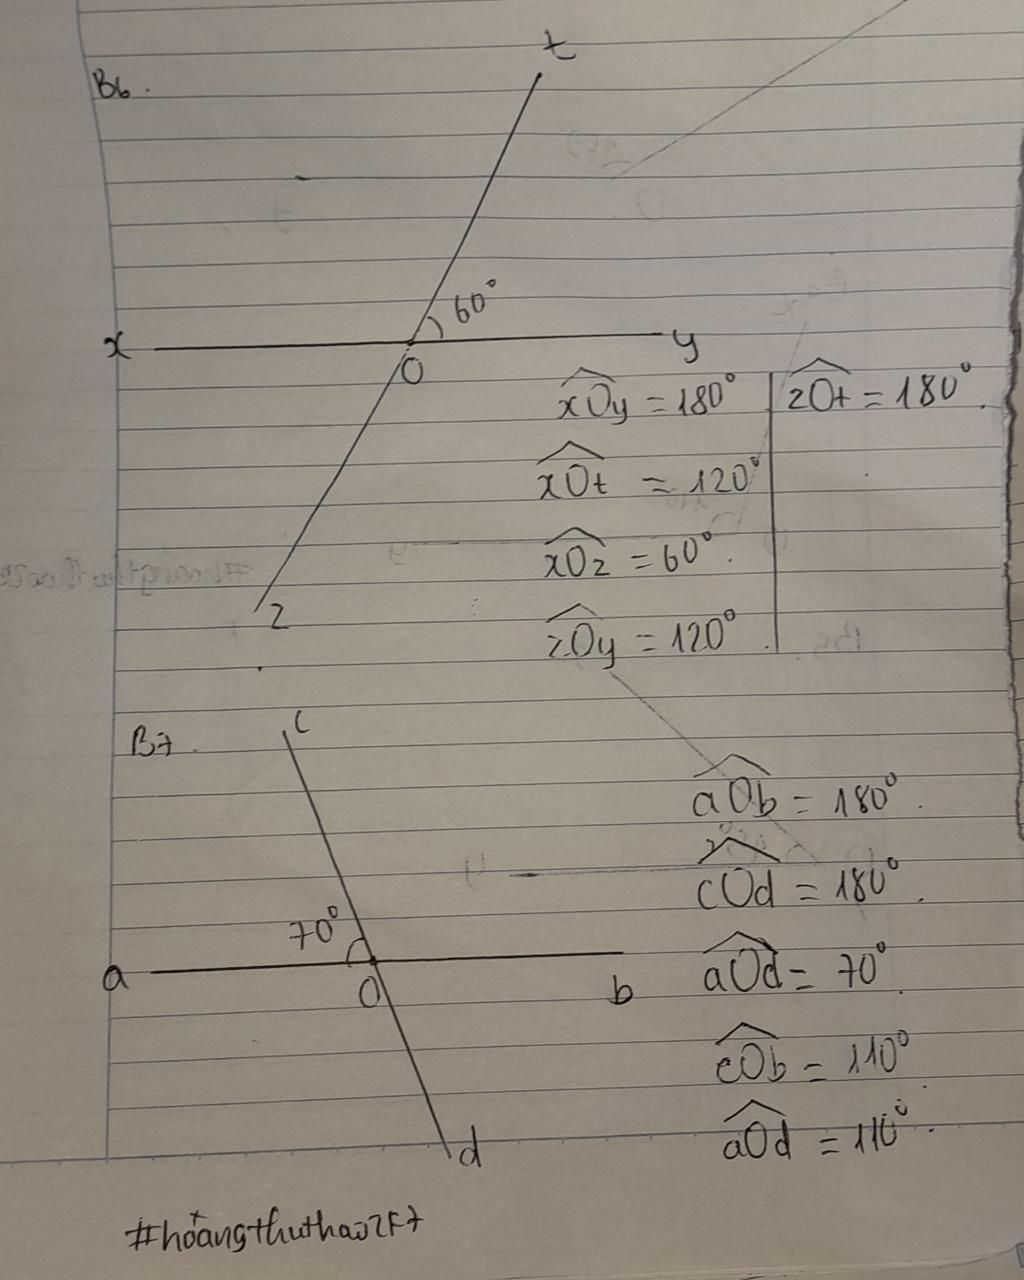 B6.
t
60°
x
y
O
z
xOy = 180°
xOt = 120°
xOz = 60°.
zOy = 120°.
zOt = 180°.
B7.
c
70°
a
O
b
d
aOb = 180°.
cOd = 180°.
aOd = 70°.
cOb = 110°
aOd = 110°.